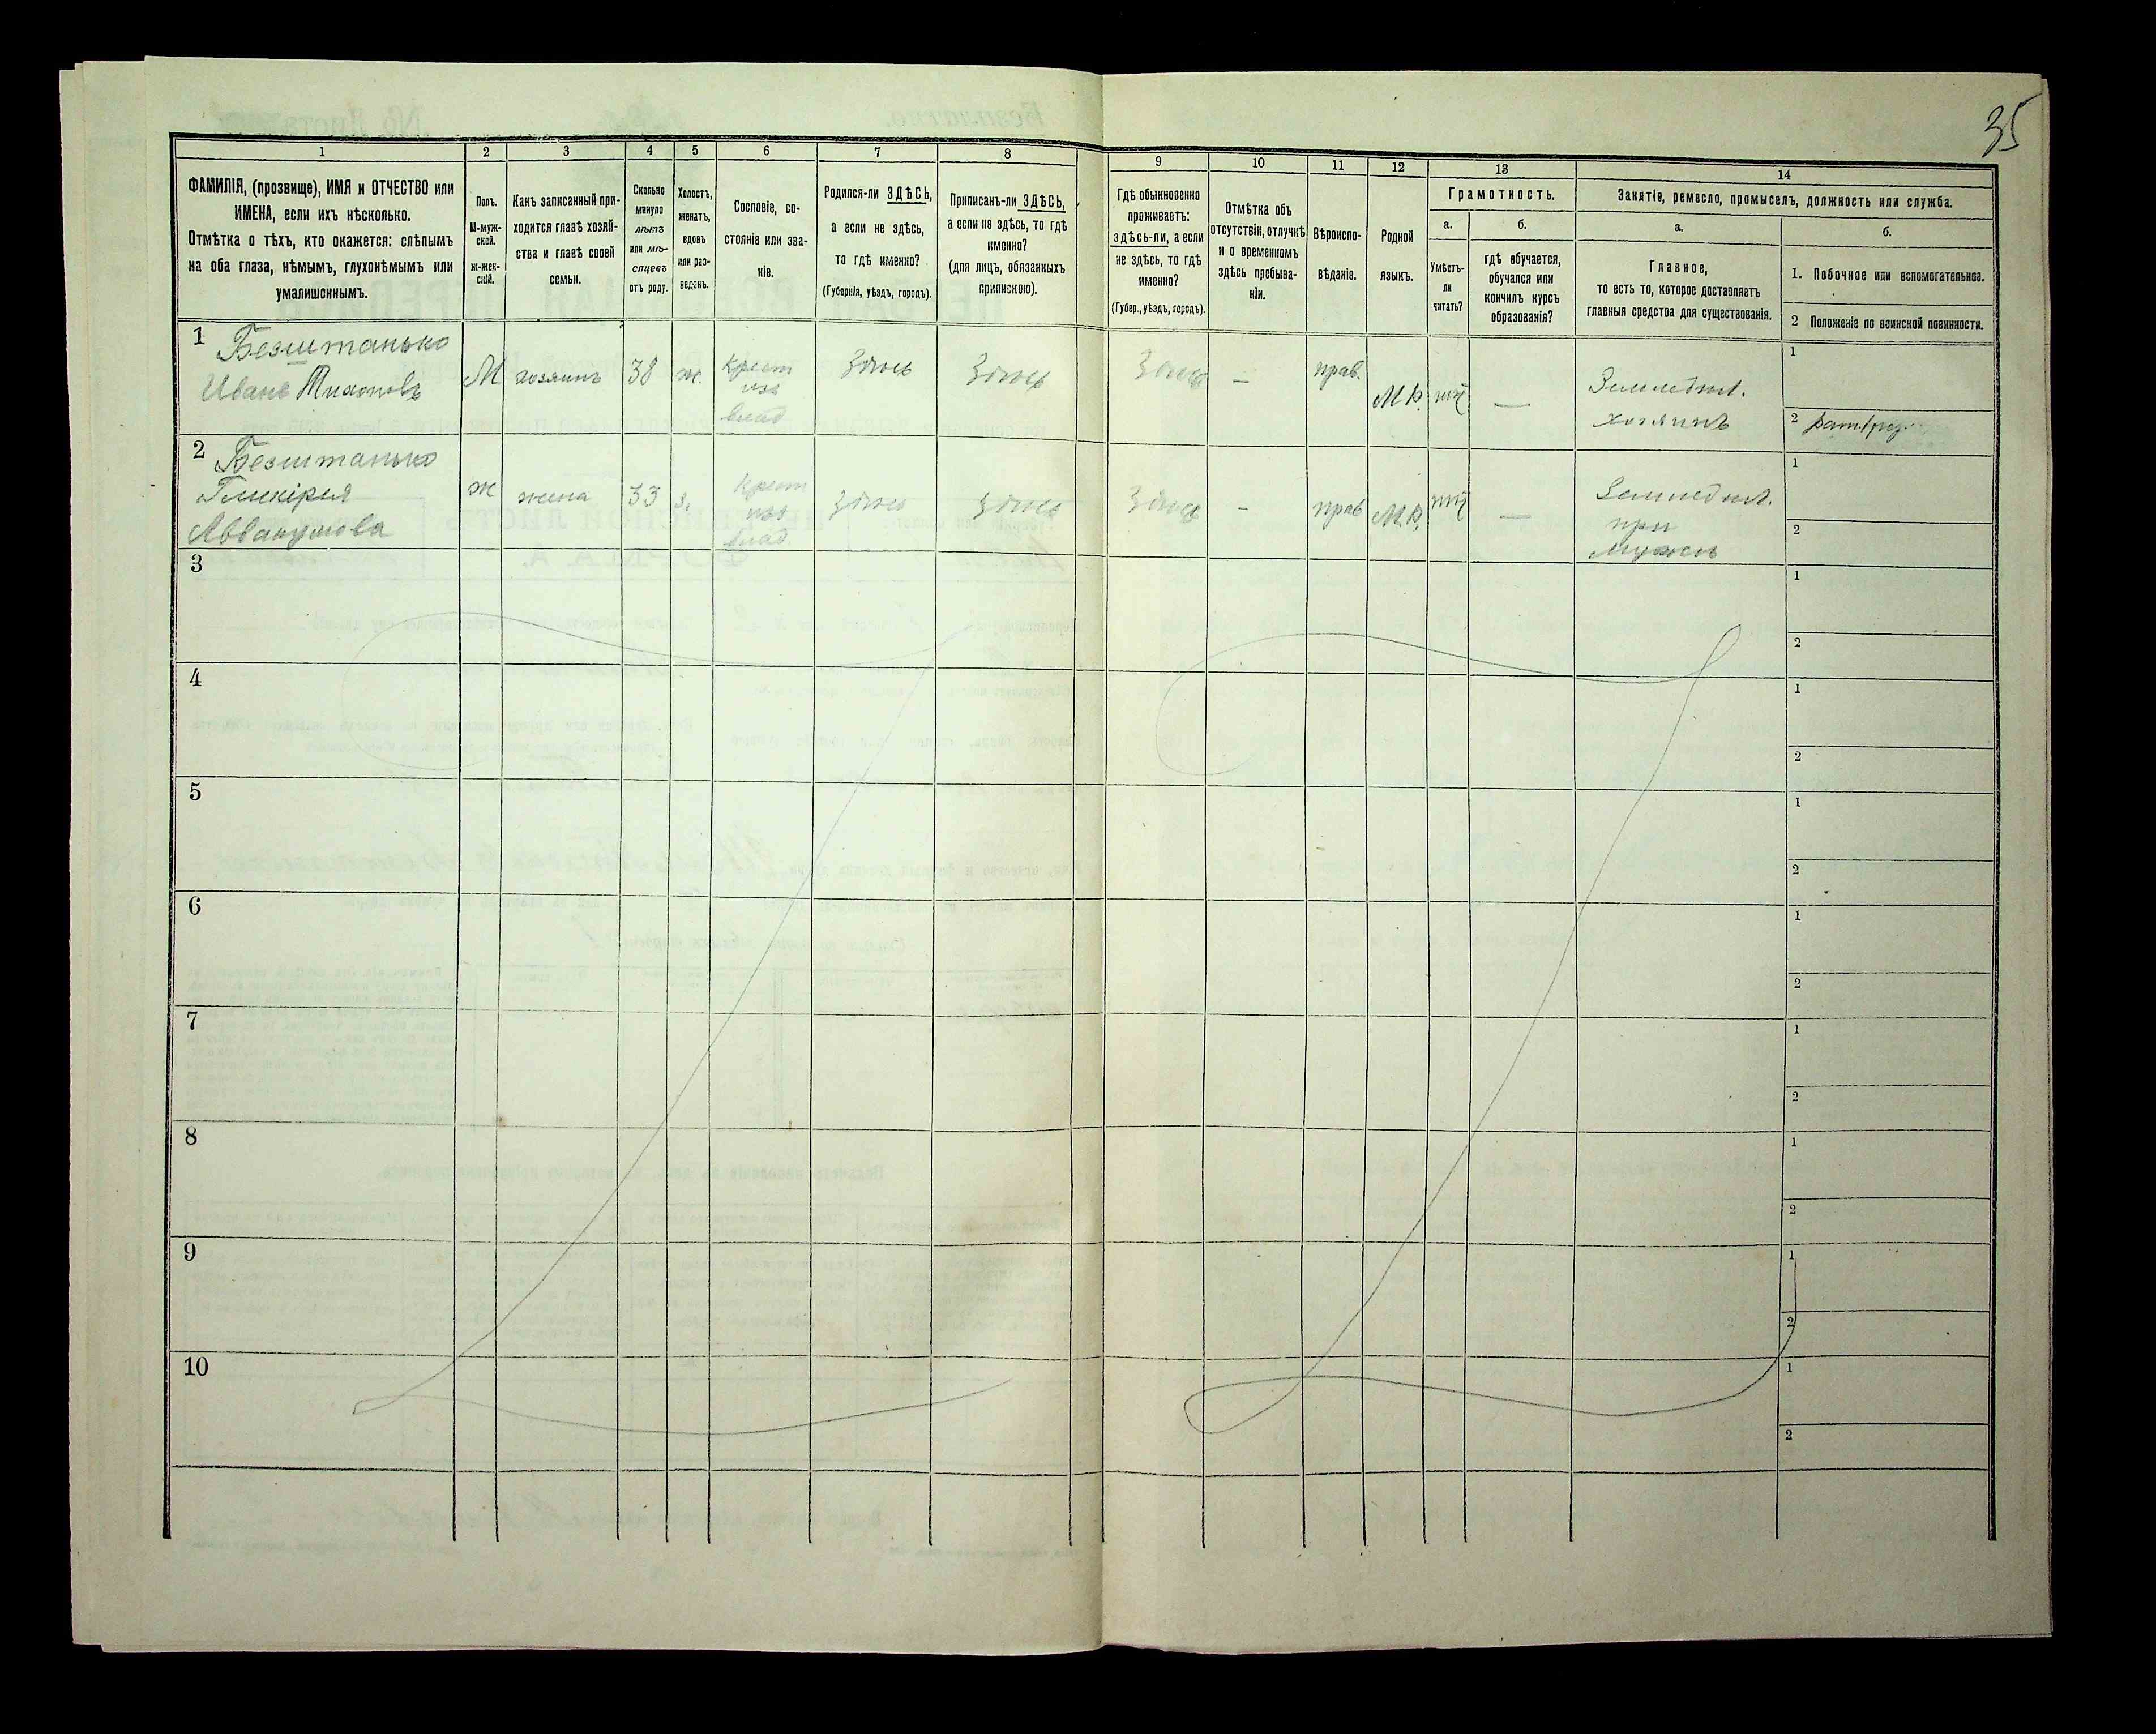 35
1
2
3
4
5
6
7
8
9
10
11
12
13
14
ФАМИЛІЯ, (прозвище), ИМЯ и ОТЧЕСТВО или
ИМЕНА, если ихъ нѣсколько.
Отмѣтка о тѣхъ, кто окажется: слѣпымъ
на оба глаза, нѣмымъ, глухонѣмымъ или
умалишоннымъ.
Полъ.
М-муж-
ской.
Ж-жен-
скій.
Какъ записанный при-
ходится главѣ хозяй-
ства и главѣ своей
семьи.
Сколько
минуло
лѣтъ
или мѣ-
сяцевъ
отъ роду.
Холостъ,
женатъ,
вдовъ
или раз-
веденъ.
Сословіе, со-
стояніе или зва-
ніе.
Родился-ли ЗДѢСЬ,
а если не здѣсь,
то гдѣ именно?
(Губернія, уѣздъ, городъ).
Приписанъ-ли ЗДѢСЬ,
а если не здѣсь, то гдѣ
именно?
(для лицъ, обязанныхъ
припискою).
Гдѣ обыкновенно
проживаетъ:
здѣсь-ли, а если
не здѣсь, то гдѣ
именно?
(Губер., уѣздъ, городъ).
Отмѣтка объ
отсутствіи, отлучкѣ
и о временномъ
здѣсь пребыва-
ніи.
Вѣроиспо-
вѣданіе.
Родной
языкъ.
Грамотность.
а.
Умѣетъ-
ли
читать?
б.
гдѣ обучается,
обучался или
кончилъ курсъ
образованія?
Занятіе, ремесло, промыселъ, должность или служба.
а.
Главное,
то есть то, которое доставляетъ
главныя средства для существованія.
б.
1. Побочное или вспомогательное.
2 Положеніе по воинской повинности.
1 Безштанько
Иванъ Тихоновъ
М
хозяинъ
38
ж.
Крест
изъ
влад
Здѣсь
Здѣсь
Здѣсь
—
прав.
М.Р.
нѣт
—
Земледѣл.
хозяинъ
1
2
2 Безштанько
Гликірея
Аввакумова
ж
жена
33
з.
Крест
изъ
влад.
Здѣсь
Здѣсь
Здѣсь
-
прав
М.Р.
нѣт
—
Земледѣл.
при
мужѣ
1
2
3
1
2
4
1
2
5
1
2
6
1
2
7
1
2
8
1
2
9
1
2
10
1
2